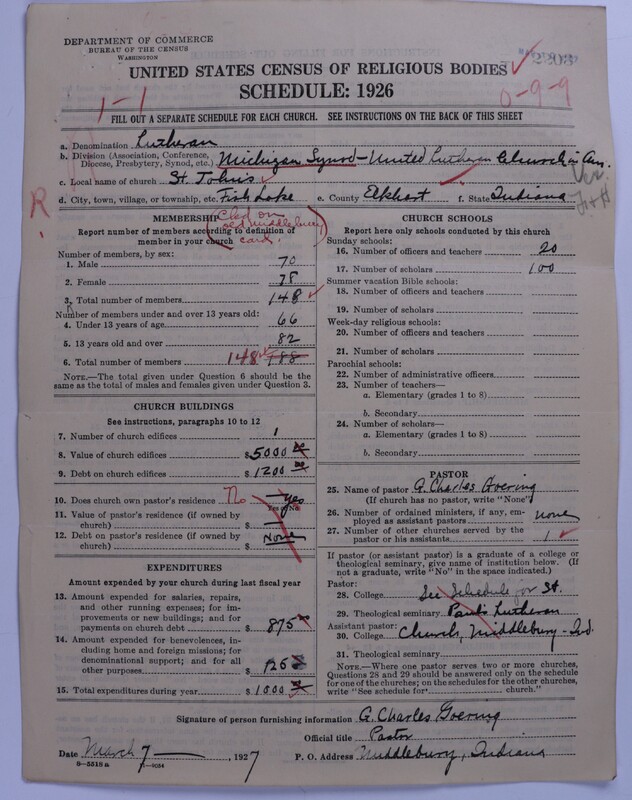 DEPARTMENT OF COMMERCE
BUREAU OF THE CENSUS
WASHINGTON
2203
UNITED STATES CENSUS OF RELIGIOUS BODIES
SCHEDULE: 1926
1-1
0-9-9
FILL OUT A SEPARATE SCHEDULE FOR EACH CHURCH. SEE INSTRUCTIONS ON THE BACK OF THIS SHEET
a. Denomination Lutheran
b. Division (Association, Conference, Diocese, Presbytery, Synod, etc.) Michigan Synod - United Lutheran Church in Am.
c. Local name of church St. John's
d. City, town, village, or township, etc. Fish Lake e. County Elkhart f. State Indiana
R.
MEMBERSHIP
Report number of members according to definition of member in your church
Number of members, by sex:
1. Male 70
2. Female 78
3. Total number of members 148
Number of members under and over 13 years old:
4. Under 13 years of age 66
5. 13 years old and over 82
6. Total number of members 148 188
NOTE.—The total given under Question 6 should be the same as the total of males and females given under Question 3.
CHURCH BUILDINGS
See instructions, paragraphs 10 to 12
7. Number of church edifices 1
8. Value of church edifices $ 5000 00
9. Debt on church edifices $ 1200 00
10. Does church own pastor's residence No Yes
Yes or No
11. Value of pastor's residence (if owned by church) $
12. Debt on pastor's residence (if owned by church) $ None
EXPENDITURES
Amount expended by your church during last fiscal year
13. Amount expended for salaries, repairs, and other running expenses; for improvements or new buildings; and for payments on church debt $ 875
14. Amount expended for benevolences, including home and foreign missions; for denominational support; and for all other purposes $ 125
15. Total expenditures during year $ 1000
CHURCH SCHOOLS
Report here only schools conducted by this church
Sunday schools:
16. Number of officers and teachers 20
17. Number of scholars 100
Summer vacation Bible schools:
18. Number of officers and teachers
19. Number of scholars
Week-day religious schools:
20. Number of officers and teachers
21. Number of scholars
Parochial schools:
22. Number of administrative officers
23. Number of teachers—
a. Elementary (grades 1 to 8)
b. Secondary
24. Number of scholars—
a. Elementary (grades 1 to 8)
b. Secondary
PASTOR
25. Name of pastor G. Charles Goering
(If church has no pastor, write "None")
26. Number of ordained ministers, if any, employed as assistant pastors none
27. Number of other churches served by the pastor or his assistants 1
If pastor (or assistant pastor) is a graduate of a college or theological seminary, give name of institution below. (If not a graduate, write "No" in the space indicated.)
Pastor:
28. College See Schedule for St.
29. Theological seminary Paul's Lutheran
Assistant pastor:
30. College Church, Middlebury - Ind.
31. Theological seminary
NOTE.—Where one pastor serves two or more churches, Questions 28 and 29 should be answered only on the schedule for one of the churches; on the schedules for the other churches, write "See schedule for church."
Signature of person furnishing information G. Charles Goering
Official title Pastor
Date March 7, 1927 P. O. Address Middlebury, Indiana